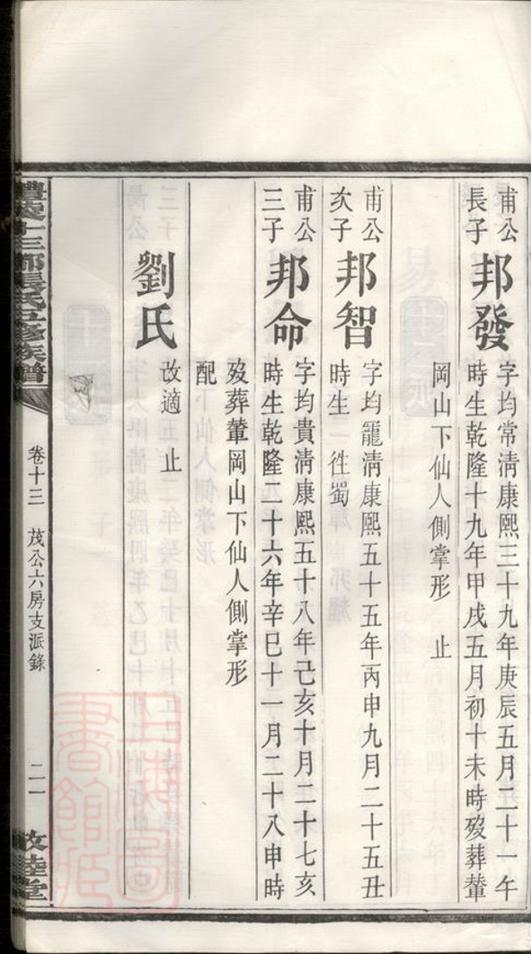 甫公
長子
邦發
字均常清康熙三十九年庚辰五月二十一午
時生乾隆十九年甲戌五月初十未時歿葬輦
岡山下仙人側掌形　止
甫公
次子
邦智
字均寵清康熙五十五年丙申九月二十五丑
時生　徃蜀
甫公
三子
邦命
字均貴清康熙五十八年己亥十月二十七亥
時生乾隆二十六年辛巳十一月二十八申時
歿葬輦岡山下仙人側掌形
配
劉氏
改適　止
十三都張氏五修族譜
卷十三　茂公六房支派錄
二一
敦睦堂
上海圖書館藏